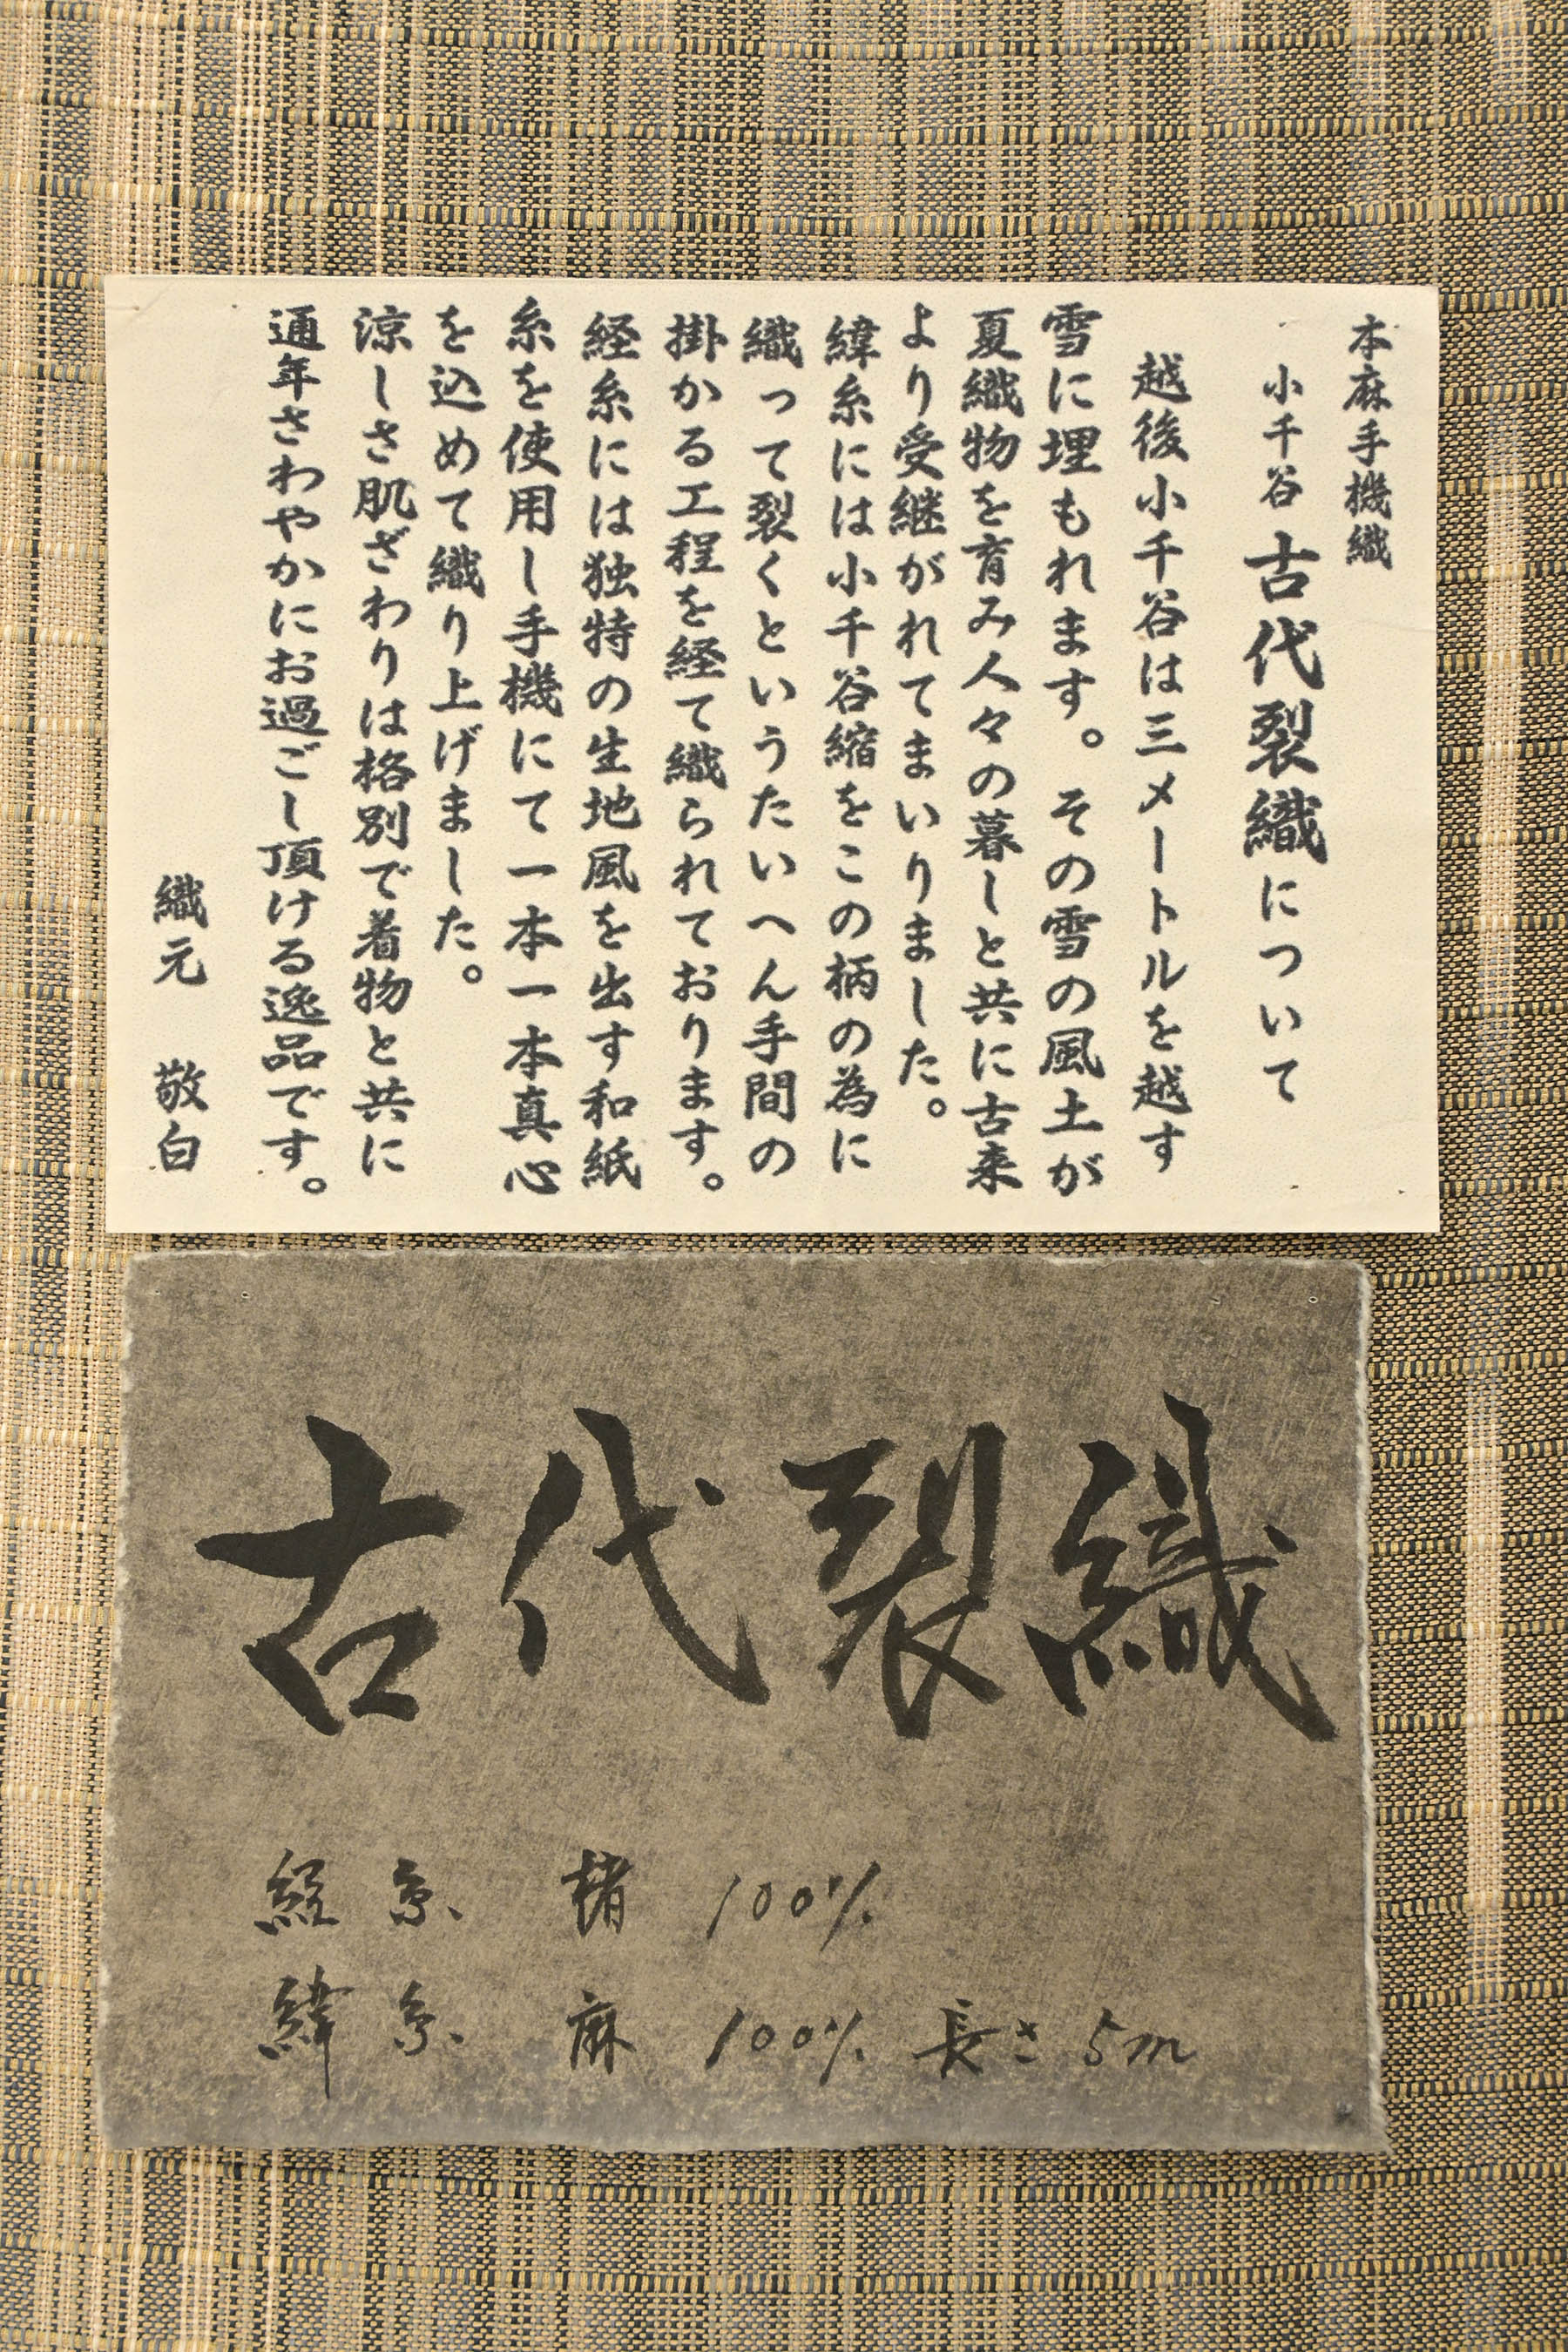 本麻手機織
小千谷 古代裂織について
越後小千谷は三メートルを越す
雪に埋もれます。その雪の風土が
夏織物を育み人々の暮しと共に古来
より受継がれてまいりました。
緯糸には小千谷縮をこの柄の為に
織って裂くというたいへん手間の
掛かる工程を経て織られております。
経糸には独特の生地風を出す和紙
糸を使用し手機にて一本一本真心
を込めて織り上げました。
涼しさ肌ざわりは格別で着物と共に
通年さわやかにお過ごし頂ける逸品です。
織元 敬白
古代裂織
経糸 楮 100%
緯糸 麻 100% 長さ 5m